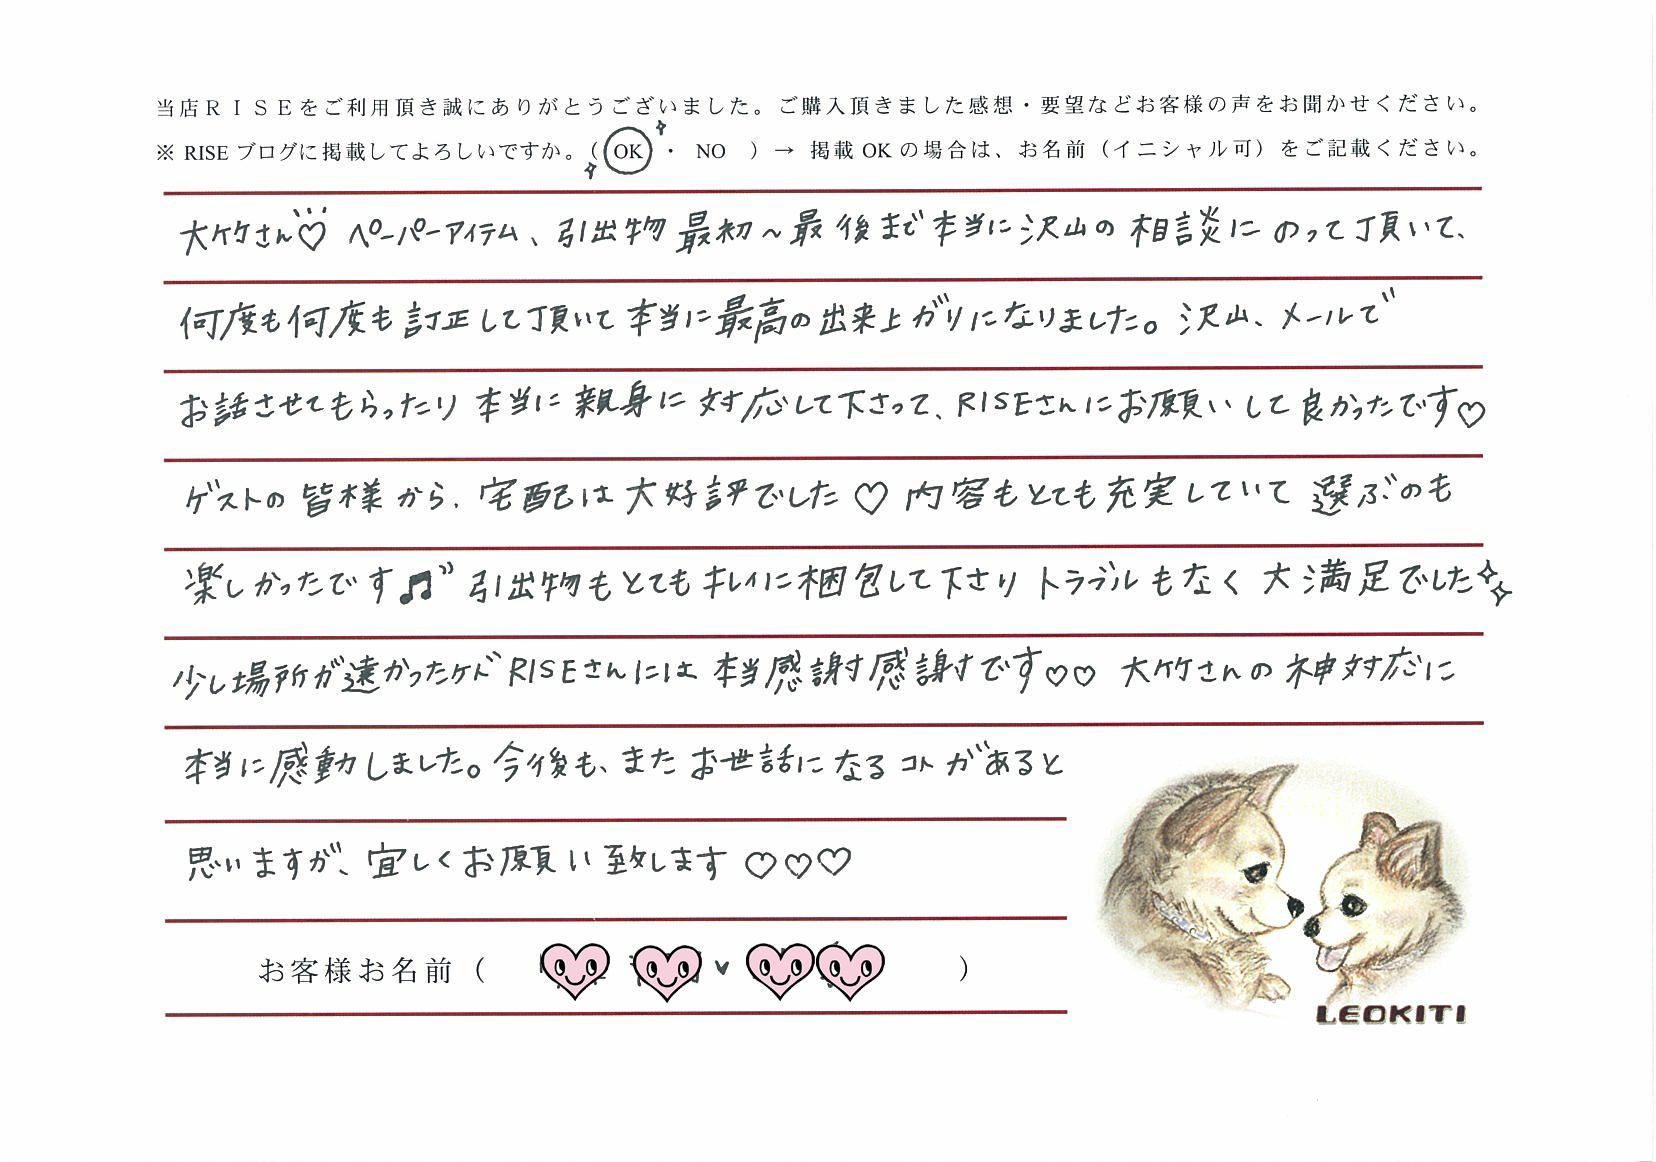 当店ＲＩＳＥをご利用頂き誠にありがとうございました。ご購入頂きました感想・要望などお客様の声をお聞かせください。
※ RISE ブログに掲載してよろしいですか。（ OK ・ NO ）→ 掲載 OK の場合は、お名前（イニシャル可）をご記載ください。
大竹さん♡ ペーパーアイテム、引出物 最初～最後まで本当に沢山の相談にのって頂いて、
何度も何度も訂正して頂いて本当に最高の出来上がりになりました。沢山、メールで
お話させてもらったり 本当に親身に対応して下さって、RISEさんにお願いして良かったです♡
ゲストの皆様から、宅配は大好評でした♡ 内容もとても充実していて選ぶのも
楽しかったです♫ 引出物もとてもキレイに梱包して下さりトラブルもなく大満足でした✧✧
少し場所が遠かったケド RISEさんには 本当感謝感謝です♡♡ 大竹さんの神対応に
本当に感動しました。今後も、またお世話になるコトがあると
思いますが、宜しくお願い致します ♡♡♡
お客様お名前（ ）
LEOKITI